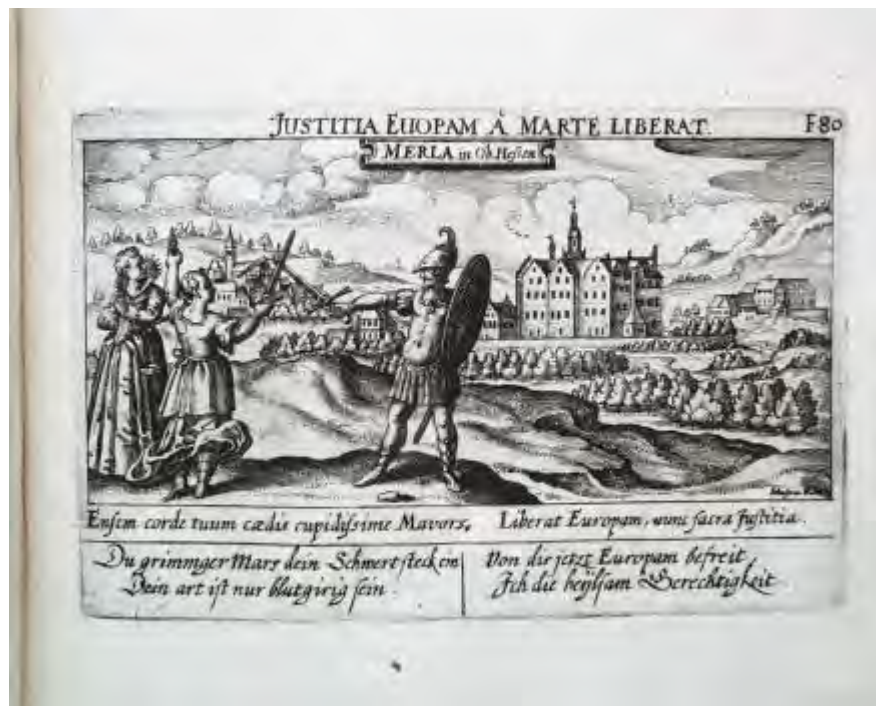 JUSTITIA EUOPAM À MARTE LIBERAT.
F80
MERLA in Ob. Hessen
Ensem corde tuum cædis cupidissime Mavors,
Liberat Europam, nunc sacra Justitia.
Du grimmger Mars dein Schwert steck ein
Dein art ist nur blutgirig sein.
Von dir jetzt Europam befreit
Ich die heylsam Gerechtigkeit